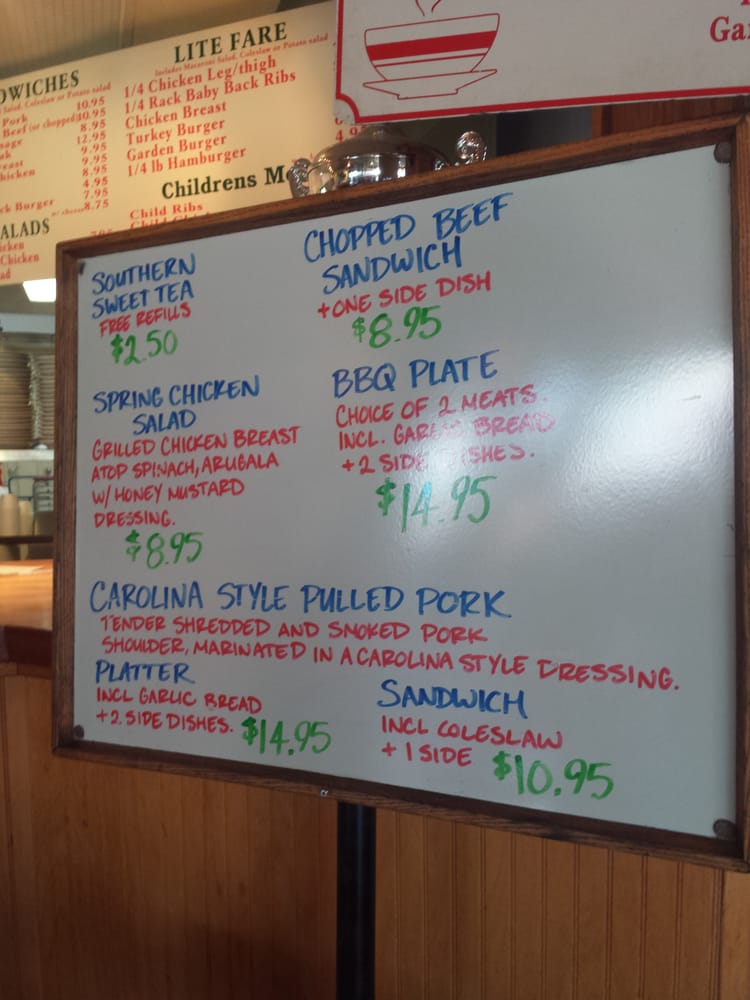 LITE FARE
Includes Macaroni Salad, Coleslaw or Potato salad
1/4 Chicken Leg/thigh
1/4 Rack Baby Back Ribs
Chicken Breast
Turkey Burger
Garden Burger
1/4 lb Hamburger
Childrens
Child Ribs
Child
DWICHES
Salad, Coleslaw or Potato salad
Pork 10.95
Beef (or chopped) 10.95
8.95
12.95
9.95
9.95
8.95
4.95
ck Burger 7.95
8.75
ALADS
Chicken
SOUTHERN
SWEET TEA
FREE REFILLS
$2.50
CHOPPED BEEF
SANDWICH
+ONE SIDE DISH
$8.95
SPRING CHICKEN
SALAD
GRILLED CHICKEN BREAST
ATOP SPINACH, ARUGALA
W/ HONEY MUSTARD
DRESSING.
$8.95
BBQ PLATE
CHOICE OF 2 MEATS.
INCL. GARLIC BREAD
+2 SIDE DISHES.
$14.95
CAROLINA STYLE PULLED PORK
TENDER SHREDDED AND SMOKED PORK
SHOULDER, MARINATED IN A CAROLINA STYLE DRESSING.
PLATTER
INCL GARLIC BREAD
+2 SIDE DISHES. $14.95
SANDWICH
INCL COLESLAW
+ 1 SIDE $10.95